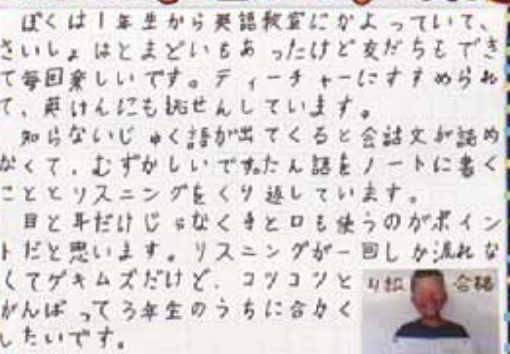 ぼくは1年生から英語教室にかよっていて、
さいしょはとまどいもあったけど友だちもでき
て毎回楽しいです。ティーチャーにすすめられ
て、英けんにも挑せんしています。
知らないじゅく語が出てくると会話文が読め
なくて、むずかしいです。たん語をノートに書く
こととリスニングをくり返しています。
目と耳だけじゃなく手と口も使うのがポイン
トだと思います。リスニングが一回しか流れな
くてゲキムズだけど、コツコツと
がんばって3年生のうちに合かく
したいです。
4級 合格